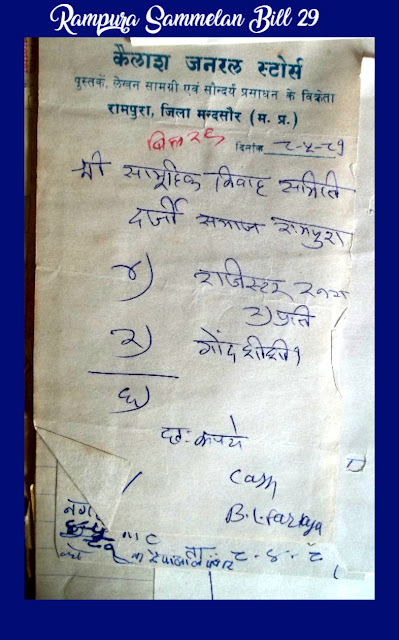 Rampura Sammelan Bill 29
कैलाश जनरल स्टोर्स
पुस्तकें, लेखन सामग्री एवं सौन्दर्य प्रसाधन के विक्रेता
रामपुरा, जिला मन्दसौर (म. प्र.)
बिल २९
दिनांक ८-५-८१
श्री सामूहिक विवाह समिति
दर्जी समाज रामपुरा
४) राजिस्टर २ नग
२) प्रति
२) गोंद शीशी १
६)
छः रुपये
Cash
नग
ता. ८-५-८